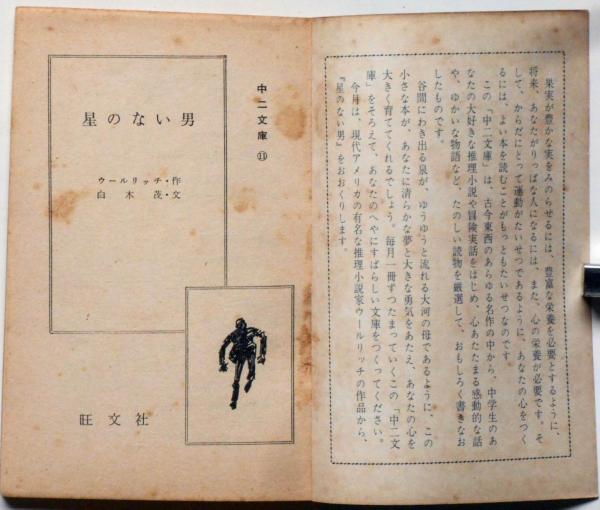 果実が豊かな実をみのらせるには、豊富な栄養を必要とするように、
将来、あなたがりっぱな人になるには、また、心の栄養が必要です。そ
して、からだにとって運動がたいせつであるように、あなたの心をつく
るには、よい本を読むことがもっともたいせつなのです。
この「中二文庫」は、古今東西のあらゆる名作の中から、中学生のあ
なたの大好きな推理小説や冒険実話をはじめ、心あたたまる感動的な話
や、ゆかいな物語など、たのしい読物を厳選して、おもしろく書きなお
したものです。
谷間にわき出る泉が、ゆうゆうと流れる大河の母であるように、この
小さな本が、あなたに清らかな夢と大きな勇気をあたえ、あなたの心を
大きく育ててくれるでしょう。毎月一冊ずつたまっていくこの「中二文
庫」をそろえて、あなたのへやにすばらしい文庫をつくってください。
今月は、現代アメリカの有名な推理小説家ウールリッチの作品から、
『星のない男』をおおくりします。
中二文庫 ⑪
星のない男
ウールリッチ・作
白木茂・文
旺文社